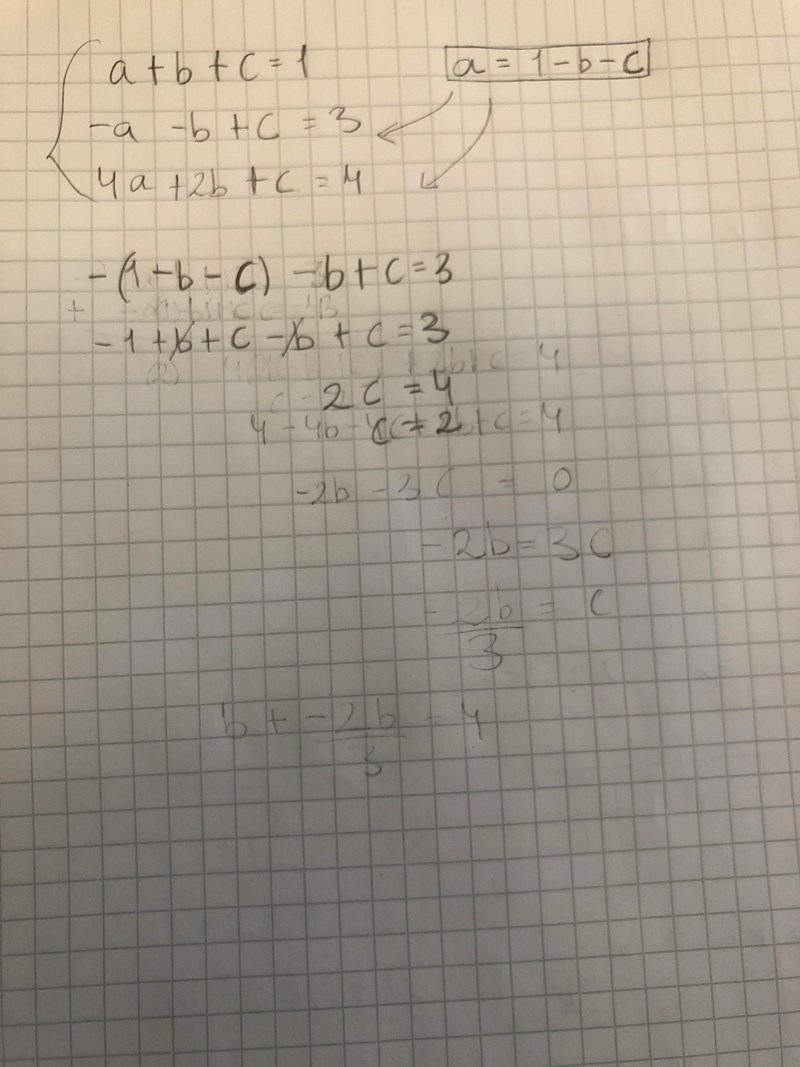 a + b + c = 1
a = 1 - b - c
-a -b + c = 3
4a + 2b + c = 4
-(1 - b - c) - b + c = 3
-1 + b + c - b + c = 3
2c = 4
4 - 4b - 4c + 2b + c = 4
-2b - 3c = 0
-2b = 3c
-2b/3 = c
b + -2b/3 = 4